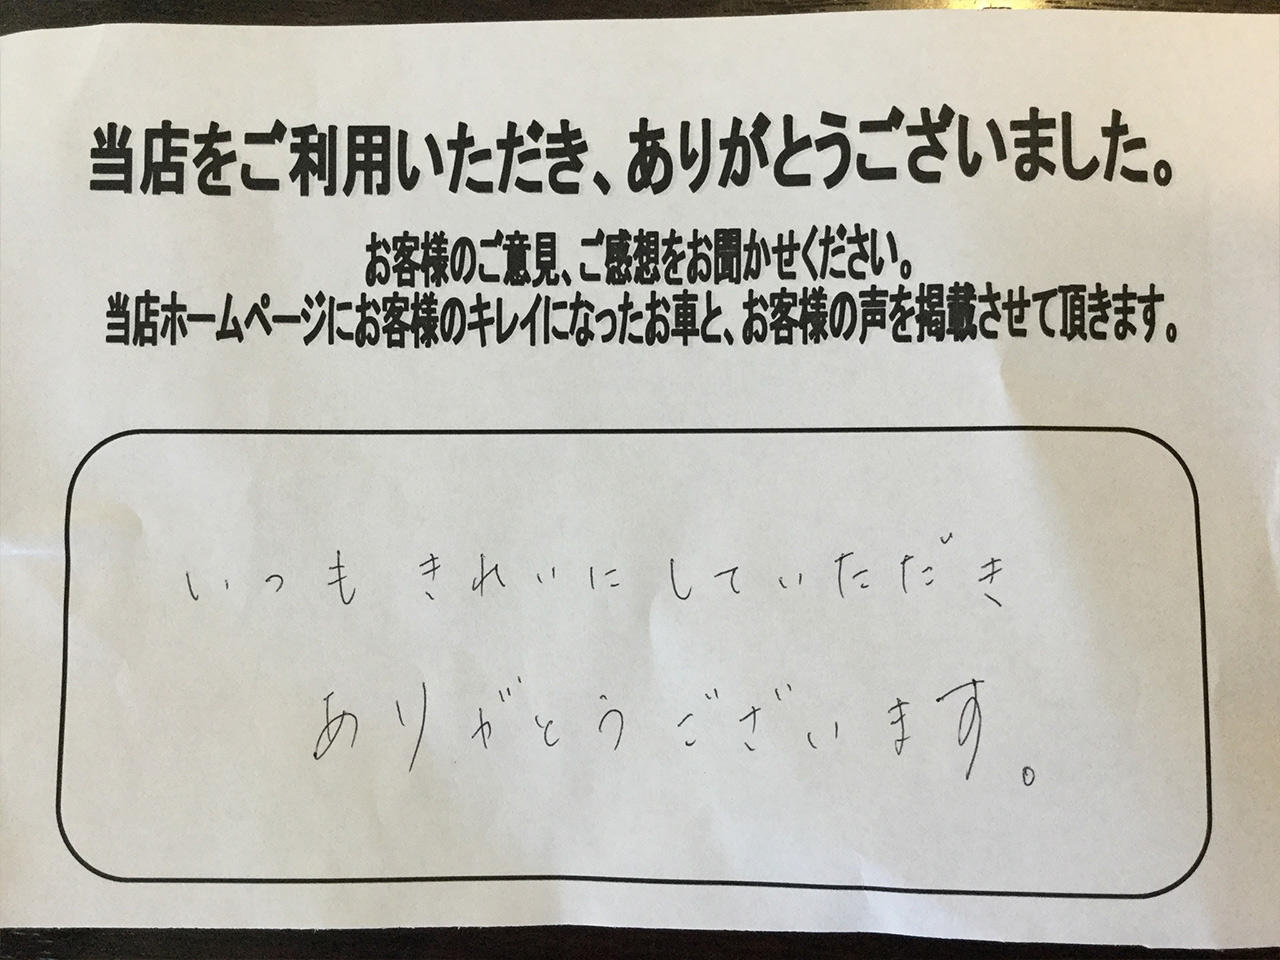 当店をご利用いただき、ありがとうございました。
お客様のご意見、ご感想をお聞かせください。
当店ホームページにお客様のキレイになったお車と、お客様の声を掲載させて頂きます。
いつもきれいにしていただき
ありがとうございます。